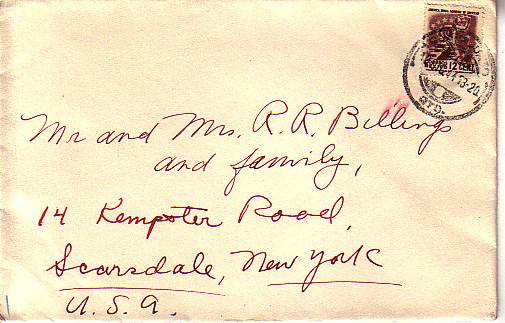 Mr and Mrs. R. R. Billings
and family,
14 Kempster Road,
Scarsdale, New York
U. S. A.